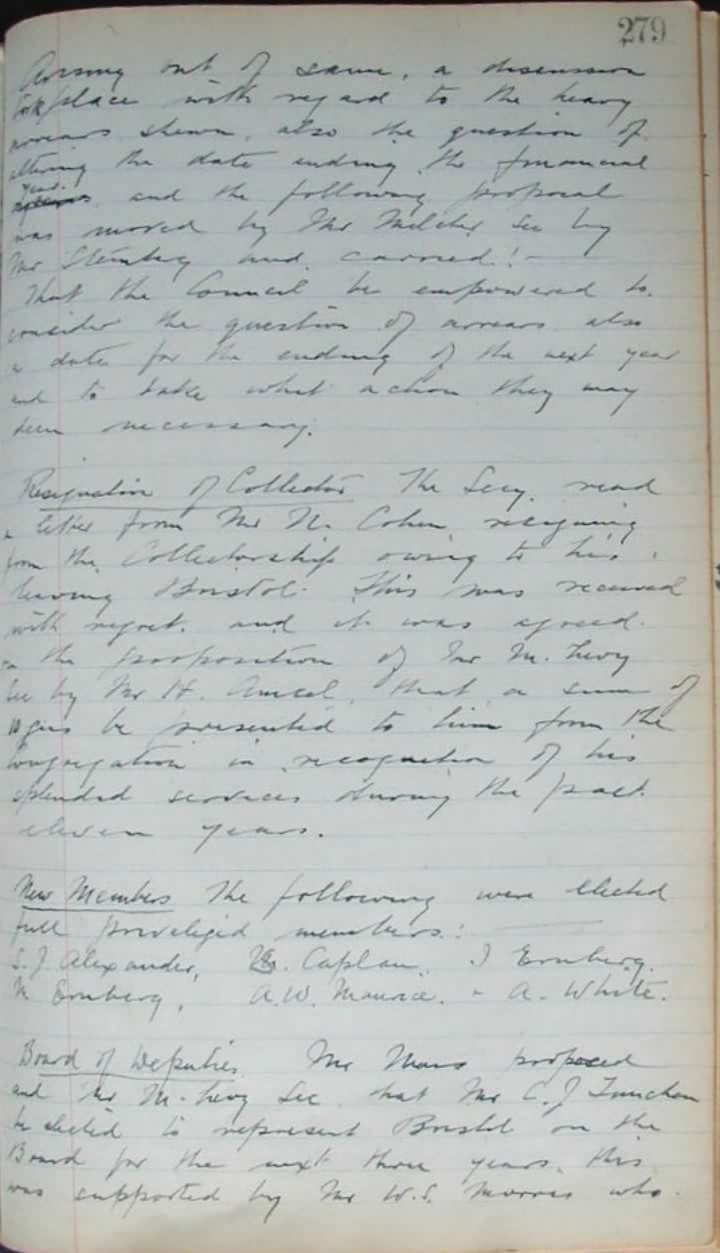 279
Arising out of same, a discussion
took place with regard to the heavy
arrears shewn, also the question of
altering the date ending the financial
year.
and the following proposal
was moved by Mr Sec by
Mr and carried! -
That the Council be empowered to
consider the question of arrears also
a date for the ending of the next year
and to take what action they may
deem necessary.
Resignation of Collector The Secy. read
a letter from Mr N. Cohen resigning
from the Collectorship owing to his
leaving Bristol. This was received
with regret. and it was agreed.
on the proposition of Mr M. Levy
Sec by Mr H. that a sum of
10 gns be presented to him from the
congregation in recognition of his
splendid services during the past
eleven years.
New Members The following were elected
full priveliged members:
S. J Alexander, Caplan. I Ernberg.
N Ernberg, A. W. Maurice. - A. White.
Board of Deputies. Mr Moss proposed
and Mr M. Levy Sec that Mr C. J
be elected to represent Bristol on the
Board for the next three years, this
was supported by Mr W. S. Morris who